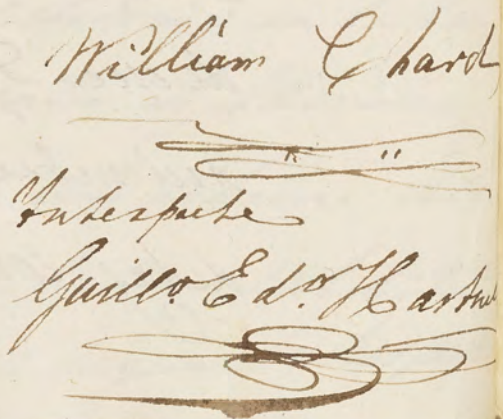 William Chard
Interprete
Guillo. Edo. Hartnel